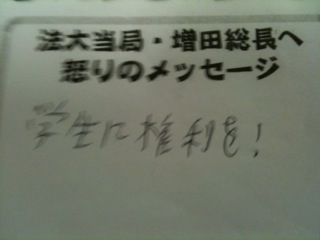 法大当局・増田総長へ
怒りのメッセージ
学生に権利を!